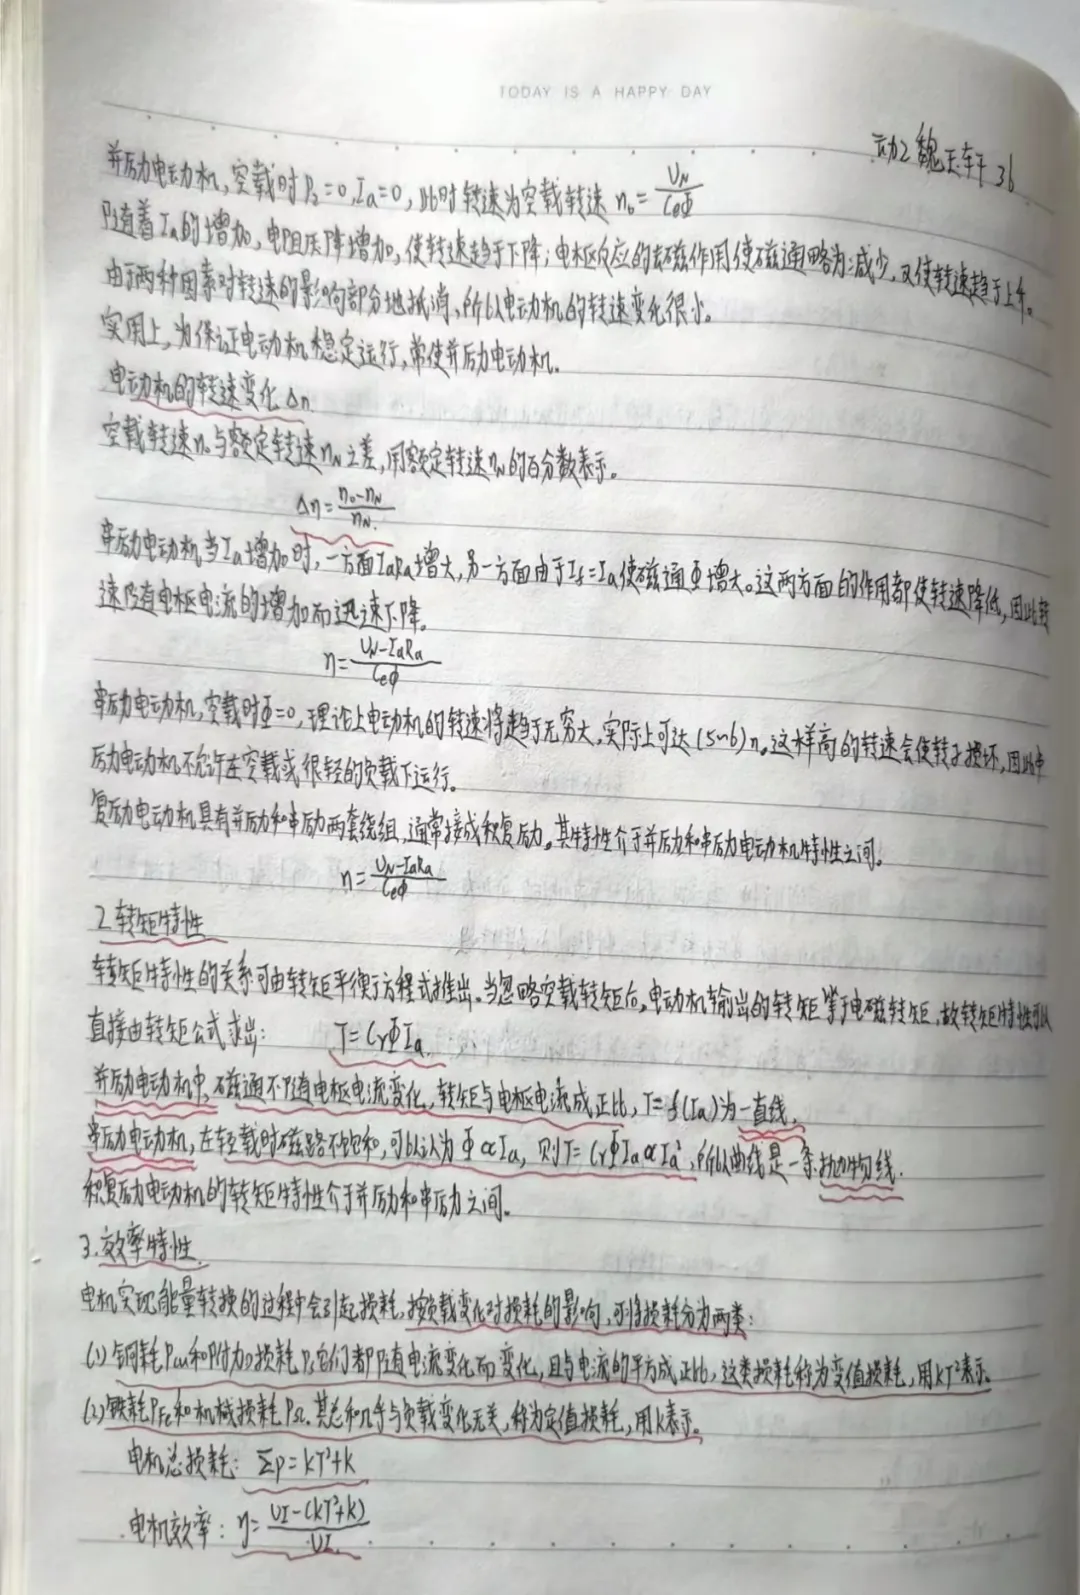 TODAY IS A HAPPY DAY
动2 魏玉轩 36
并励电动机,空载时P₂=0,Ia=0,此时转速为空载转速 n₀=UN/CeΦ
随着Ia的增加,电阻压降增加,使转速趋于下降;电枢反应的去磁作用使磁通略为减少,又使转速趋于上升。
由于两种因素对转速的影响部分地抵消,所以电动机的转速变化很小。
实用上,为保证电动机稳定运行,常使并励电动机.
电动机的转速变化 Δn
空载转速n₀与额定转速nN之差,用额定转速nN的百分数表示。
Δn=n₀-nN/nN
串励电动机当Ia增加时,一方面IaRa增大,另一方面由于If=Ia使磁通Φ增大。这两方面的作用都使转速降低,因此转
速随电枢电流的增加而迅速下降。
n=UN-IaRa/CeΦ
串励电动机,空载时Φ=0,理论上电动机的转速将趋于无穷大,实际上可达(5~6)n。这样高的转速会使转子损坏,因此串
励电动机不允许在空载或很轻的负载下运行。
复励电动机具有并励和串励两套绕组,通常接成积复励。其特性介于并励和串励电动机特性之间。
n=UN-IaRa/CeΦ
2.转矩特性
转矩特性的关系可由转矩平衡方程式推出。当忽略空载转矩后,电动机输出的转矩等于电磁转矩,故转矩特性可以
直接由转矩公式求出: T=CrΦIa
并励电动机中,磁通不随电枢电流变化,转矩与电枢电流成正比,T=f(Ia)为一直线.
串励电动机,在轻载时磁路不饱和,可以认为Φ∝Ia, 则T=CrΦIa∝Ia²,所以曲线是一条抛物线.
积复励电动机的转矩特性介于并励和串励之间。
3.效率特性.
电机实现能量转换的过程中会引起损耗,按负载变化对损耗的影响,可将损耗分为两类:
(1)铜耗Pcu和附加损耗Ps它们都随电流变化而变化,且与电流的平方成正比,这类损耗称为变值损耗,用kI²表示.
(2)铁耗PFe和机械损耗PΩ.其总和几乎与负载变化无关,称为定值损耗,用k表示。
电机总损耗: Σp=kI²+k
电机效率: η=UI-(kI²+k)/UI